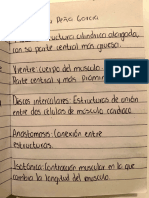 Peña García
estructura cilíndrica alargada,
con su parte central más gruesa.
Vientre: cuerpo del músculo.
Parte central y más
Discos intercalares: Estructuras de unión
entre dos células de músculo cardíaco
Anastomosis: Conexión entre
estructuras.
Isotónica: Contracción muscular en la que
cambia la longitud del músculo.